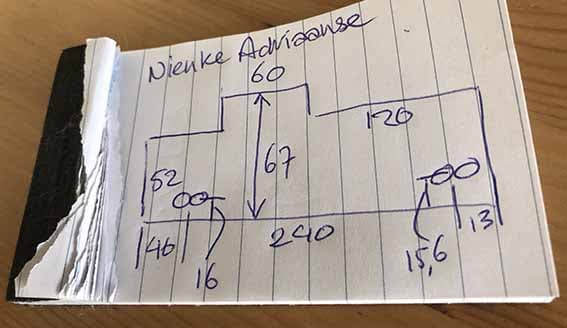 Nienke Adriaanse
60
120
52
67
46
16
240
15,6
13